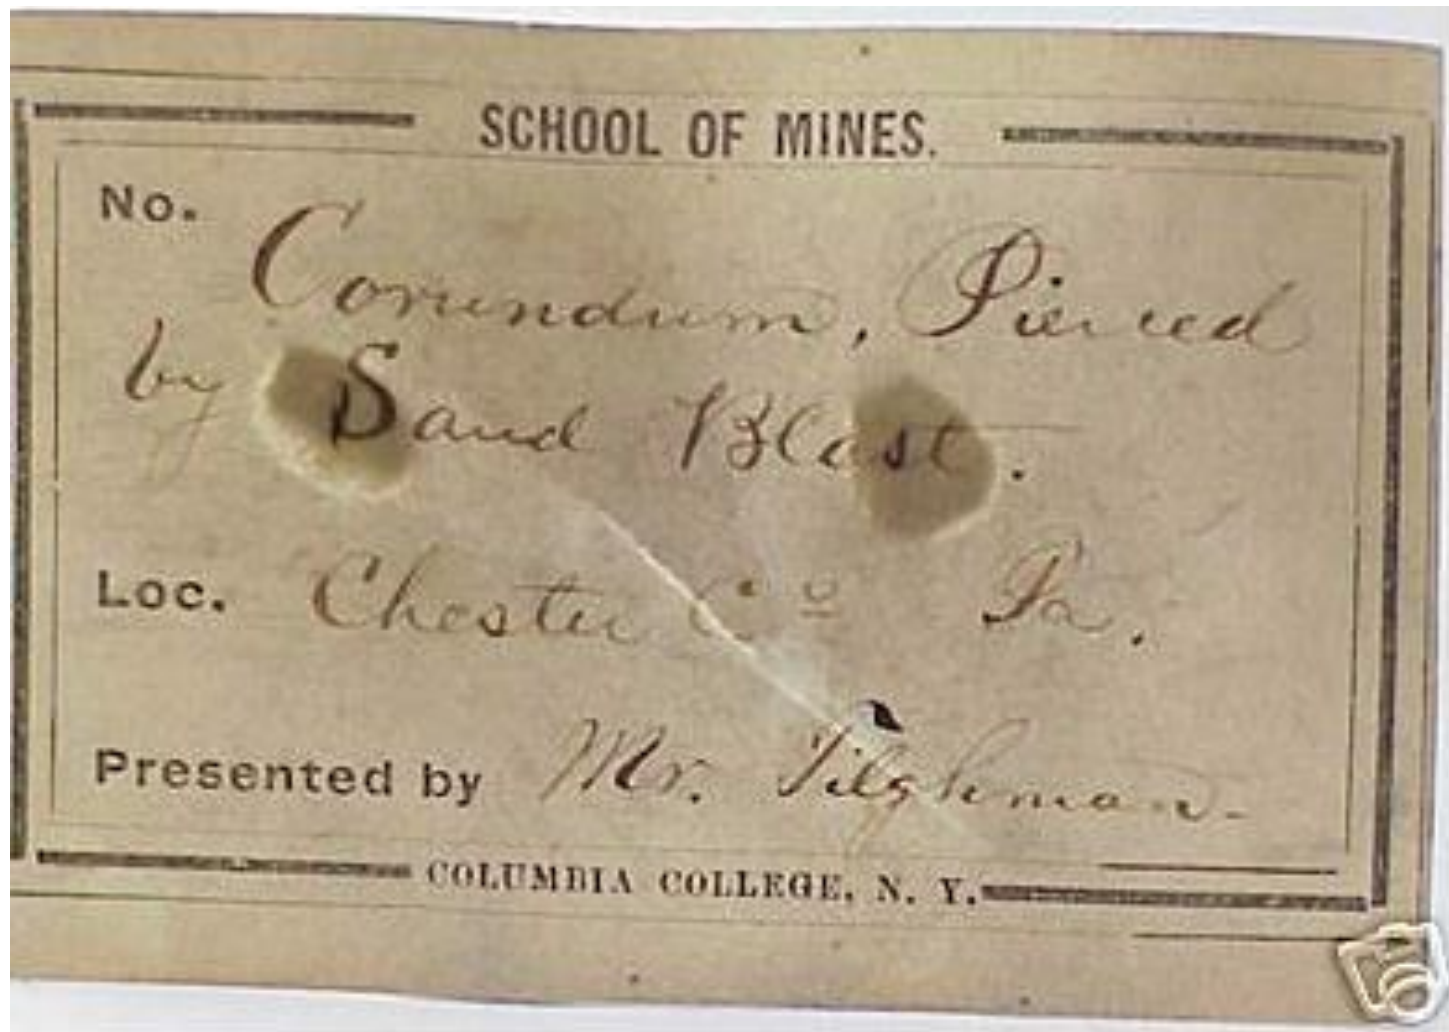 SCHOOL OF MINES.
No.
Corundum, Pierced
by Sand Blast.
Loc. Chester Co Pa.
Presented by Mr. Tilghman.
COLUMBIA COLLEGE, N. Y.